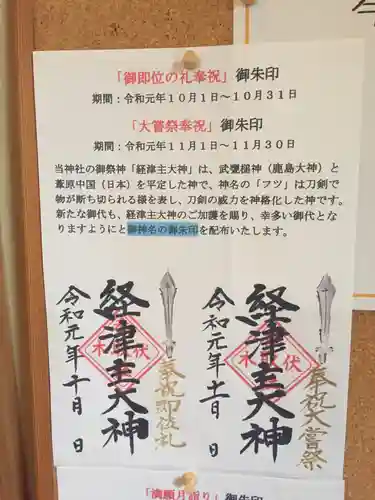 「御即位の礼奉祝」御朱印
期間：令和元年１０月１日～１０月３１日
「大嘗祭奉祝」御朱印
期間：令和元年１１月１日～１１月３０日
当神社の御祭神「経津主大神」は、武甕槌神（鹿島大神）と
葦原中国（日本）を平定した神で、神名の「フツ」は刀剣で
物が断ち切られる様を表し、刀剣の威力を神格化した神です。
新たな御代も、経津主大神のご加護を賜り、幸多い御代とな
りますようにと御神名の御朱印を配布いたします。
奉祝大嘗祭
経津主大神
令和元年十一月 日
奉祝即位礼
経津主大神
令和元年十月 日
「満願月詣り」御朱印